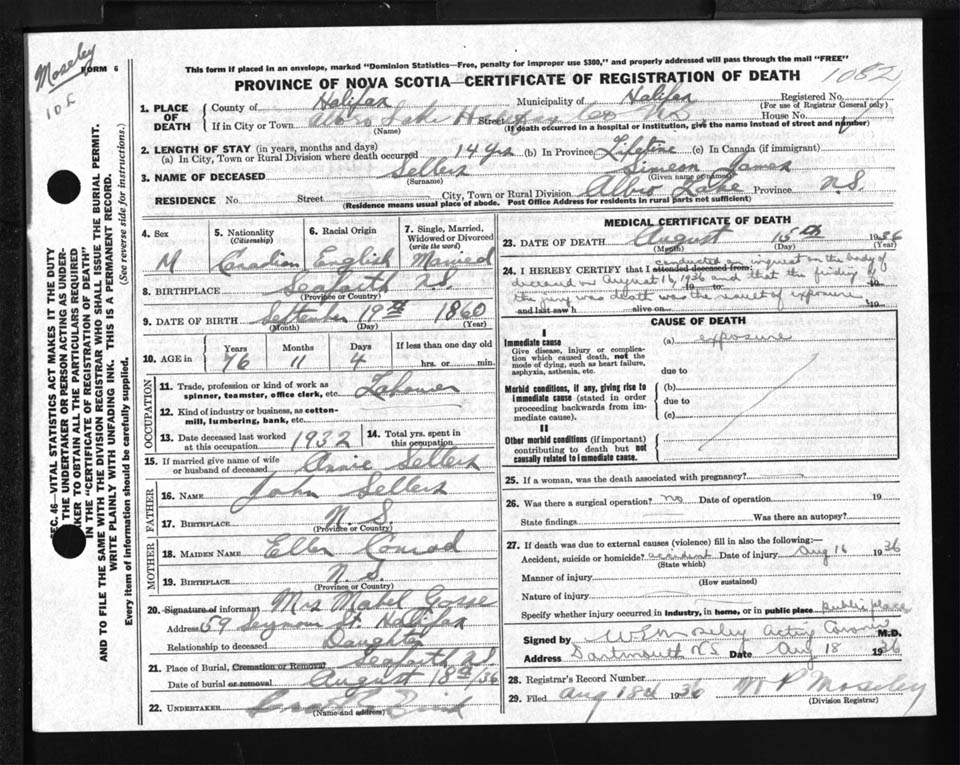 Moseley
FORM 6
This form if placed in an envelope, marked "Dominion Statistics—Free, penalty for improper use $300," and properly addressed will pass through the mail "FREE"
PROVINCE OF NOVA SCOTIA—CERTIFICATE OF REGISTRATION OF DEATH
1082
1. PLACE OF DEATH
County of Halifax Municipality of Halifax Registered No.
(For use of Registrar General only)
If in City or Town Albro Lake Halifax Co NS Street House No.
(Name) (If death occurred in a hospital or institution, give the name instead of street and number)
2. LENGTH OF STAY (in years, months and days)
(a) In City, Town or Rural Division where death occurred 14 yrs (b) In Province Lifetime (c) In Canada (if immigrant)
3. NAME OF DECEASED Sellers Simeon James
(Surname) (Given name or names)
RESIDENCE No. Street City, Town or Rural Division Albro Lake Province N.S.
(Residence means usual place of abode. Post Office Address for residents in rural parts not sufficient)
SEC. 46—VITAL STATISTICS ACT MAKES IT THE DUTY
THE UNDERTAKER OR PERSON ACTING AS UNDER-
KER TO OBTAIN ALL THE PARTICULARS REQUIRED
IN THE "CERTIFICATE OF REGISTRATION OF DEATH"
AND TO FILE THE SAME WITH THE DIVISION REGISTRAR WHO SHALL ISSUE THE BURIAL PERMIT.
WRITE PLAINLY WITH UNFADING INK. THIS IS A PERMANENT RECORD.
Every item of information should be carefully supplied. (See reverse side for instructions.)
4. Sex M
5. Nationality (Citizenship) Canadian
6. Racial Origin English
7. Single, Married, Widowed or Divorced (write the word) Married
8. BIRTHPLACE Seaforth N.S.
(Province or Country)
9. DATE OF BIRTH September 19th 1860
(Month) (Day) (Year)
10. AGE in Years Months Days If less than one day old
76 11 4 hrs. or min.
OCCUPATION
11. Trade, profession or kind of work as spinner, teamster, office clerk, etc.
12. Kind of industry or business, as cotton-mill, lumbering, bank, etc.
13. Date deceased last worked at this occupation 1932
14. Total yrs. spent in this occupation
15. If married give name of wife or husband of deceased Annie Sellers
FATHER
16. NAME John Sellers
17. BIRTHPLACE N.S.
(Province or Country)
MOTHER
18. MAIDEN NAME Ellen Conrad
19. BIRTHPLACE N.S.
(Province or Country)
20. Signature of informant Mrs Mabel Gosse
Address 59 Seymour St. Halifax
Relationship to deceased Daughter
21. Place of Burial, Cremation or Removal Seaforth N.S.
Date of burial or removal August 18th, 36
22. UNDERTAKER
(Name and address)
MEDICAL CERTIFICATE OF DEATH
23. DATE OF DEATH August 15th 1936
(Month) (Day) (Year)
24. I HEREBY CERTIFY that I attended deceased from: conducted an inquest on the body of
deceased on August 16, 1936 and that the finding of 19 to 19
the jury was death was the result of exposure 19
and last saw h alive on
CAUSE OF DEATH
I
Immediate cause (a) exposure
Give disease, injury or complication which caused death, not the mode of dying, such as heart failure, asphyxia, asthenia, etc.
due to
Morbid conditions, if any, giving rise to immediate cause (stated in order proceeding backwards from immediate cause).
(b)
due to
(c)
II
Other morbid conditions (if important) contributing to death but not causally related to immediate cause.
25. If a woman, was the death associated with pregnancy?
26. Was there a surgical operation? no Date of operation 19
State findings Was there an autopsy?
27. If death was due to external causes (violence) fill in also the following:—
Accident, suicide or homicide? accident Date of injury Aug 16 1936
(State which)
Manner of injury
(How sustained)
Nature of injury
Specify whether injury occurred in industry, in home, or in public place public place
Signed by W E Moseley Acting Coroner M.D.
Address Dartmouth N.S. Date Aug 18 1936
28. Registrar's Record Number
29. Filed Aug 18th 1936 M P Moseley
(Division Registrar)